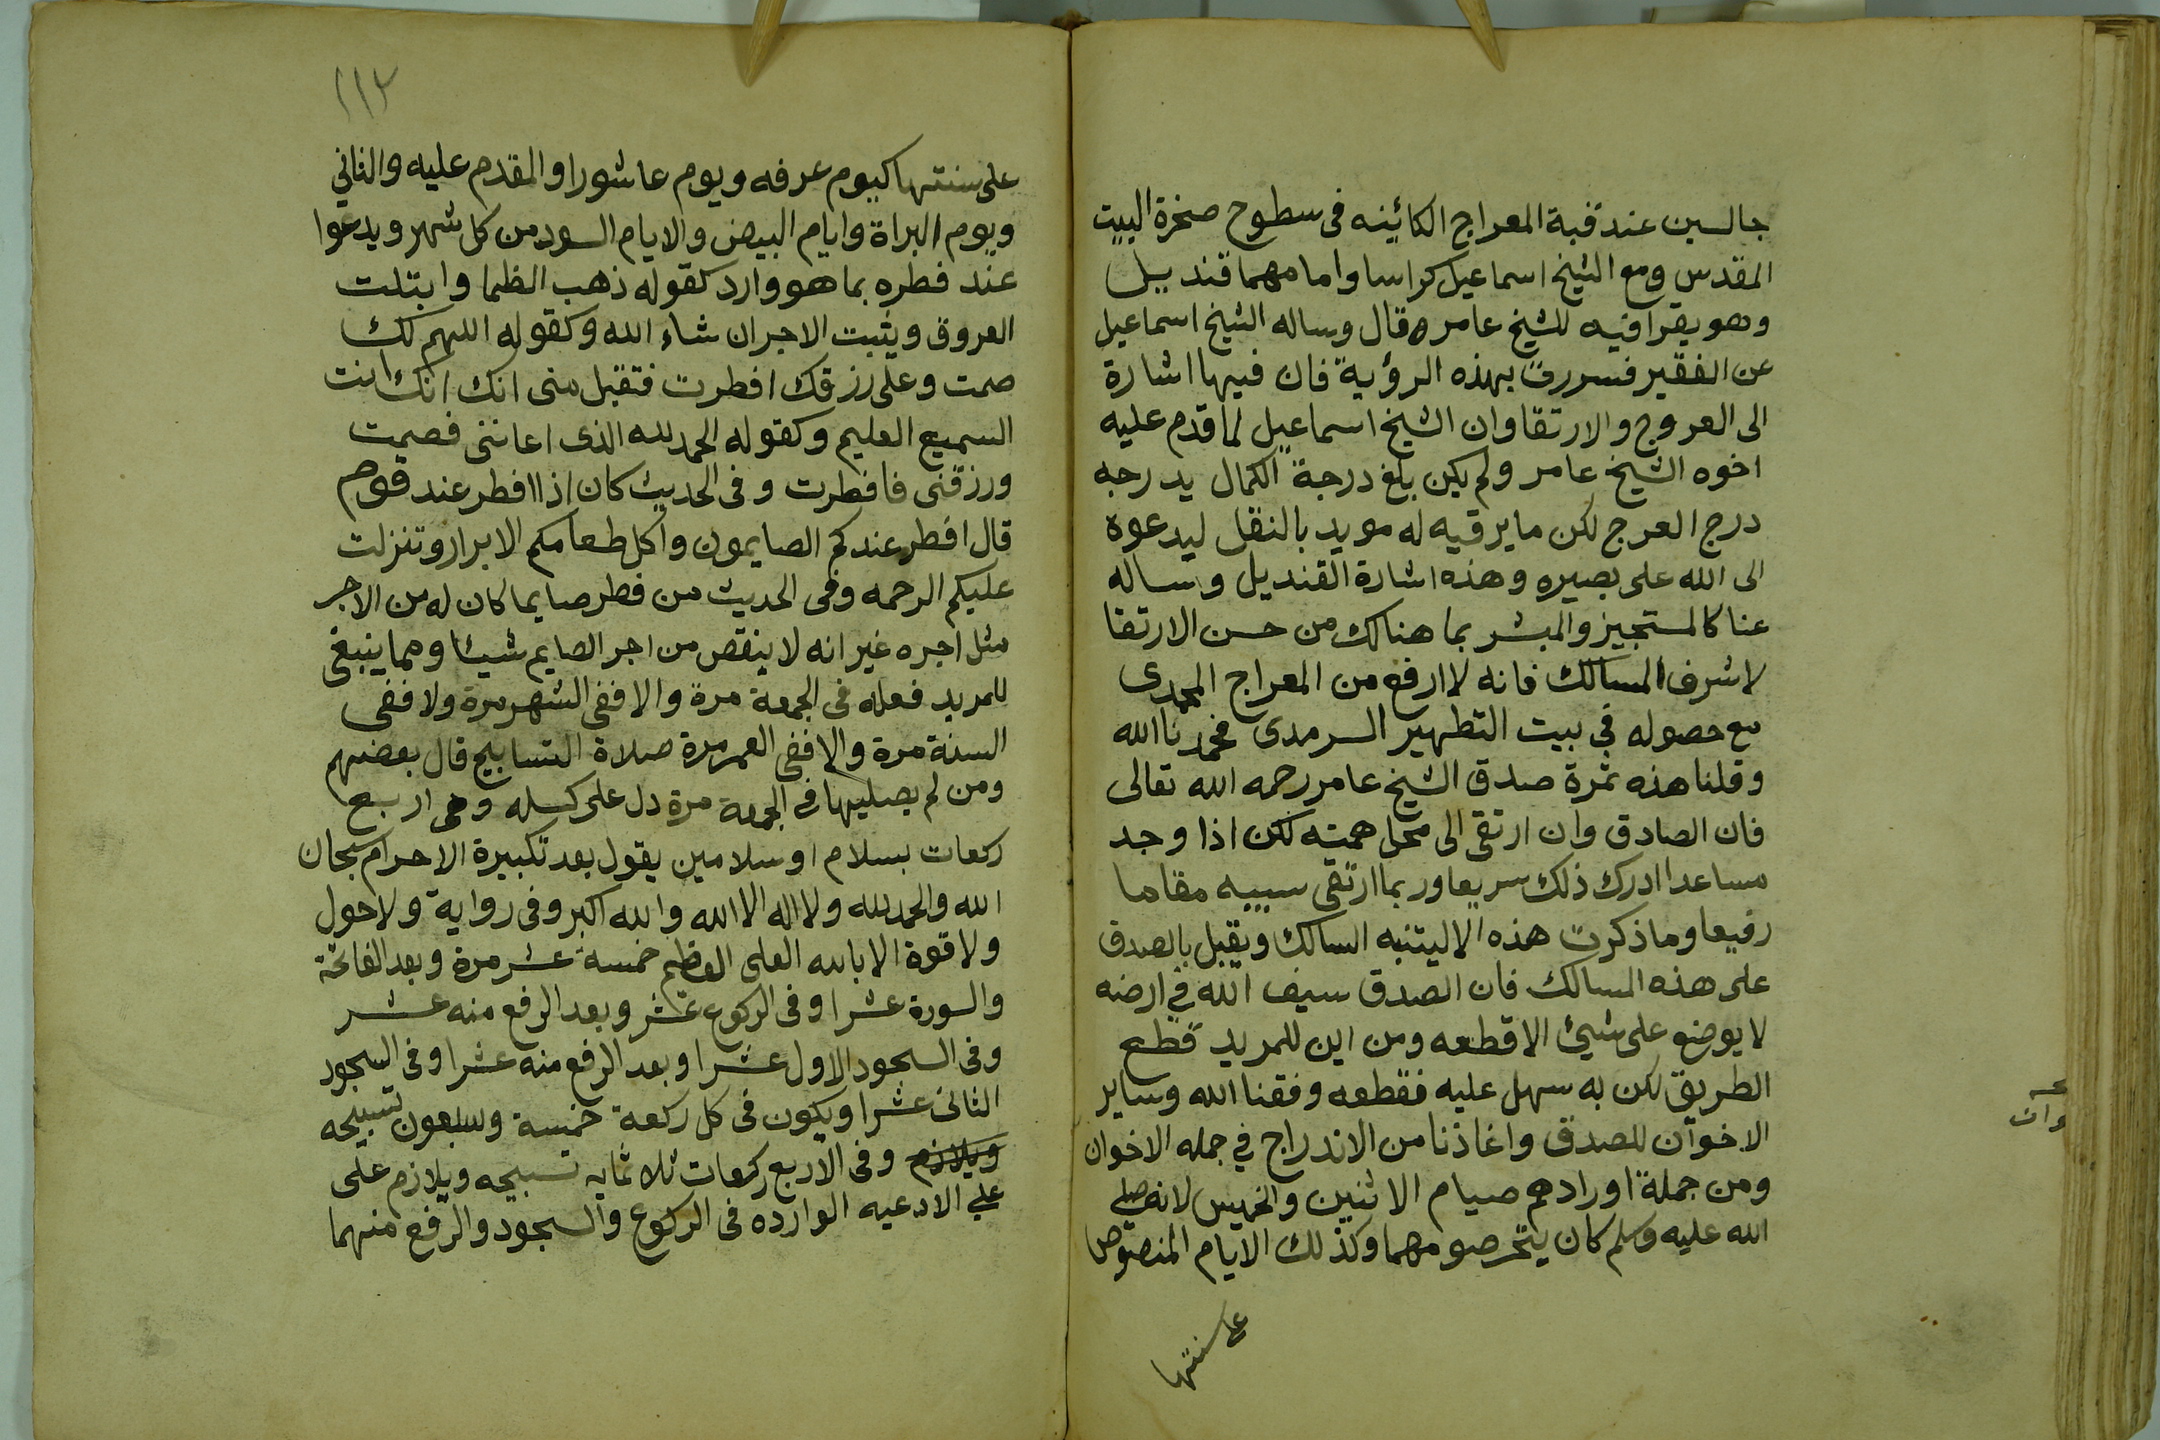 جالسين عند قبة المعراج الكائينه فى سطوح صخرة البيت
المقدس ومع الشيخ اسماعيل كراسا وامامهما قنديل
وهو يقرا فيه للشيخ عامر وقال وساله الشيخ اسماعيل
عن الفقير فسررت بهذه الرؤية فان فيها اشارة
الى العروج والارتقا وان الشيخ اسماعيل لما قدم عليه
اخوه الشيخ عامر ولم يكن بلغ درجة الكمال يدرجه
درج العرج لكن ما يرقيه له مويد بالنقل ليدعوه
الى الله على بصيره وهذه اشارة القنديل وساله
عنا كالمستجيز والمبشر بما هنالك من حسن الارتقا
لاشرف المسالك فانه لا ارفع من المعراج المحمدى
مع حصوله في بيت التطهير السرمدى فحمدنا الله
وقلنا هذه ثمرة صدق الشيخ عامر رحمه الله تعالى
فان الصادق وان ارتقى الى محل همته لكن اذا وجد
مساعدا ادرك ذلك سريعا وربما ارتقى سببه مقاما
رفيعا وما ذكرت هذه الا ليتنبه السالك ويقبل بالصدق
على هذه المسالك فان الصدق سيف الله في ارضه
لا يوضع على شيئ الا قطعه ومن اين للمريد قطع
الطريق لكن به سهل عليه فقطعه وفقنا الله وساير
الاخوان للصدق واعاذنا من الاندراج في جمله الاخوان
ومن جملة اورادهم صيام الاثنين والخميس لانه صلى
الله عليه وسلم كان يتحر صومهما وكذلك الايام المنصوص
على سنتها
وان
١١٢
على سنتها كيوم عرفه ويوم عاشورا والمقدم عليه والثاني
ويوم البراة وايام البيض والايام السود من كل شهر ويدعوا
عند فطره بما هو وارد كقوله ذهب الظما وابتلت
العروق ويثبت الاجر ان شاء الله وكقوله اللهم لك
صمت وعلى رزقك افطرت فتقبل منى انك انك انت
السميع العليم وكقوله الحمد لله الذى اعاننى فصمت
ورزقنى فافطرت وفى الحديث كان اذا افطر عند قوم
قال افطر عندكم الصايمون واكل طعامكم الابرار وتنزلت
عليكم الرحمه وفى الحديث من فطر صايما كان له من الاجر
مثل اجره غير انه لا ينقص من اجر الصايم شيئا ومما ينبغى
للمريد فعله فى الجمعة مرة والا ففى الشهر مرة ولا ففى
السنة مرة والا ففى العمر مرة صلاة التسابيح قال بعضهم
ومن لم يصليها فى الجمعة مرة دل على كسله وهى اربع
ركعات بسلام او سلامين يقول بعد تكبيرة الاحرام سبحان
الله والحمد لله ولا اله الا الله والله اكبر وفى رواية ولا حول
ولا قوة الا بالله العلى العظيم خمسة عشر مرة وبعد الفاتحة
والسورة عشرا وفى الركوع عشر وبعد الرفع منه عشر
وفى السجود الاول عشرا وبعد الرفع منه عشرا وفى السجود
الثانى عشرا ويكون فى كل ركعة خمسة وسبعون تسبيحه
ويلازم وفى الاربع ركعات ثلاثمايه تسبيحه ويلازم على
على الادعيه الوارده فى الركوع والسجود والرفع منهما